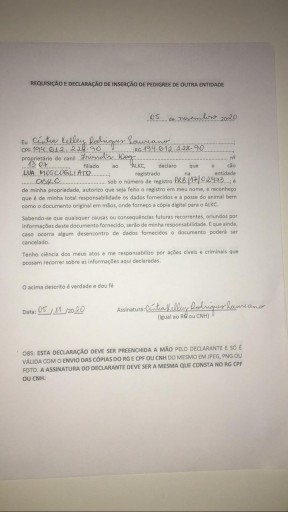 REQUISIÇÃO E DECLARAÇÃO DE INSERÇÃO DE PEDIGREE DE OUTRA ENTIDADE
05 de novembro /2020
Eu Cíntia Kelley Rodrigues Laureano,
CPF 194.612.228-40, RG 194.612.228-40
proprietário do canil King, nº
1707 filiado ao ALKC, declaro que o cão
LUA registrado na entidade
sob o número de registro e
de minha propriedade, autorizo que seja feito o registro em meu nome, e reconheço
que é de minha total responsabilidade os dados fornecidos e a posse do animal bem
como o documento original em mãos, onde forneço a cópia digital para o ALKC.
Sabendo-se que quaisquer causas ou consequências futuras recorrentes, oriundos por
informações deste documento fornecido, serão de minha responsabilidade. E que ainda,
caso ocorra algum desencontro de dados fornecidos o documento poderá ser
cancelado.
Tenho ciência dos meus atos e me responsabilizo por ações cíveis e criminais que
possam recorrer sobre as informações aqui declaradas.
O acima descrito é verdade e dou fé
Data: 05/11/2020 Assinatura: Cíntia Kelley Rodrigues Laureano
(igual ao RG ou CNH)
OBS: ESTA DECLARAÇÃO DEVE SER PREENCHIDA A MÃO PELO DECLARANTE E SÓ É
VÁLIDA COM O ENVIO DAS CÓPIAS DO RG E CPF OU CNH DO MESMO EM JPEG, PNG OU
FOTO. A ASSINATURA DO DECLARANTE DEVE SER A MESMA QUE CONSTA NO RG CPF
OU CNH.